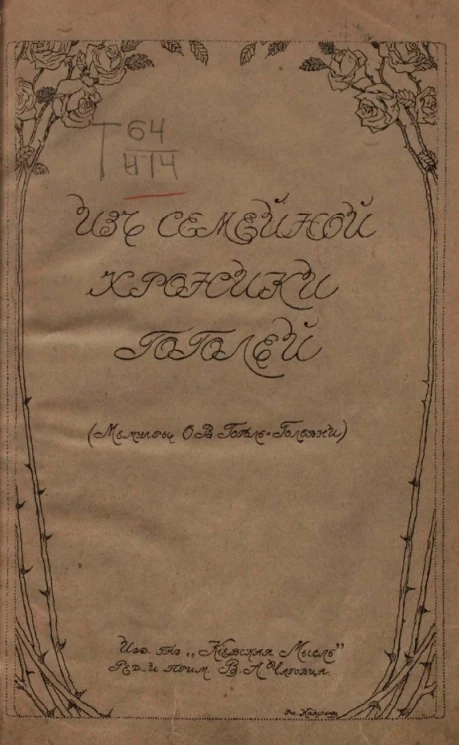 Т 64
414
ИЗЪ СЕМЕЙНОЙ
ХРОНИКИ
ГОГОЛЕЙ
(Мемуары О.В Гоголь-Головни)
Изд. газ. „Кіевская Мысль"
Ред. и прим. В. А. Чаговца.